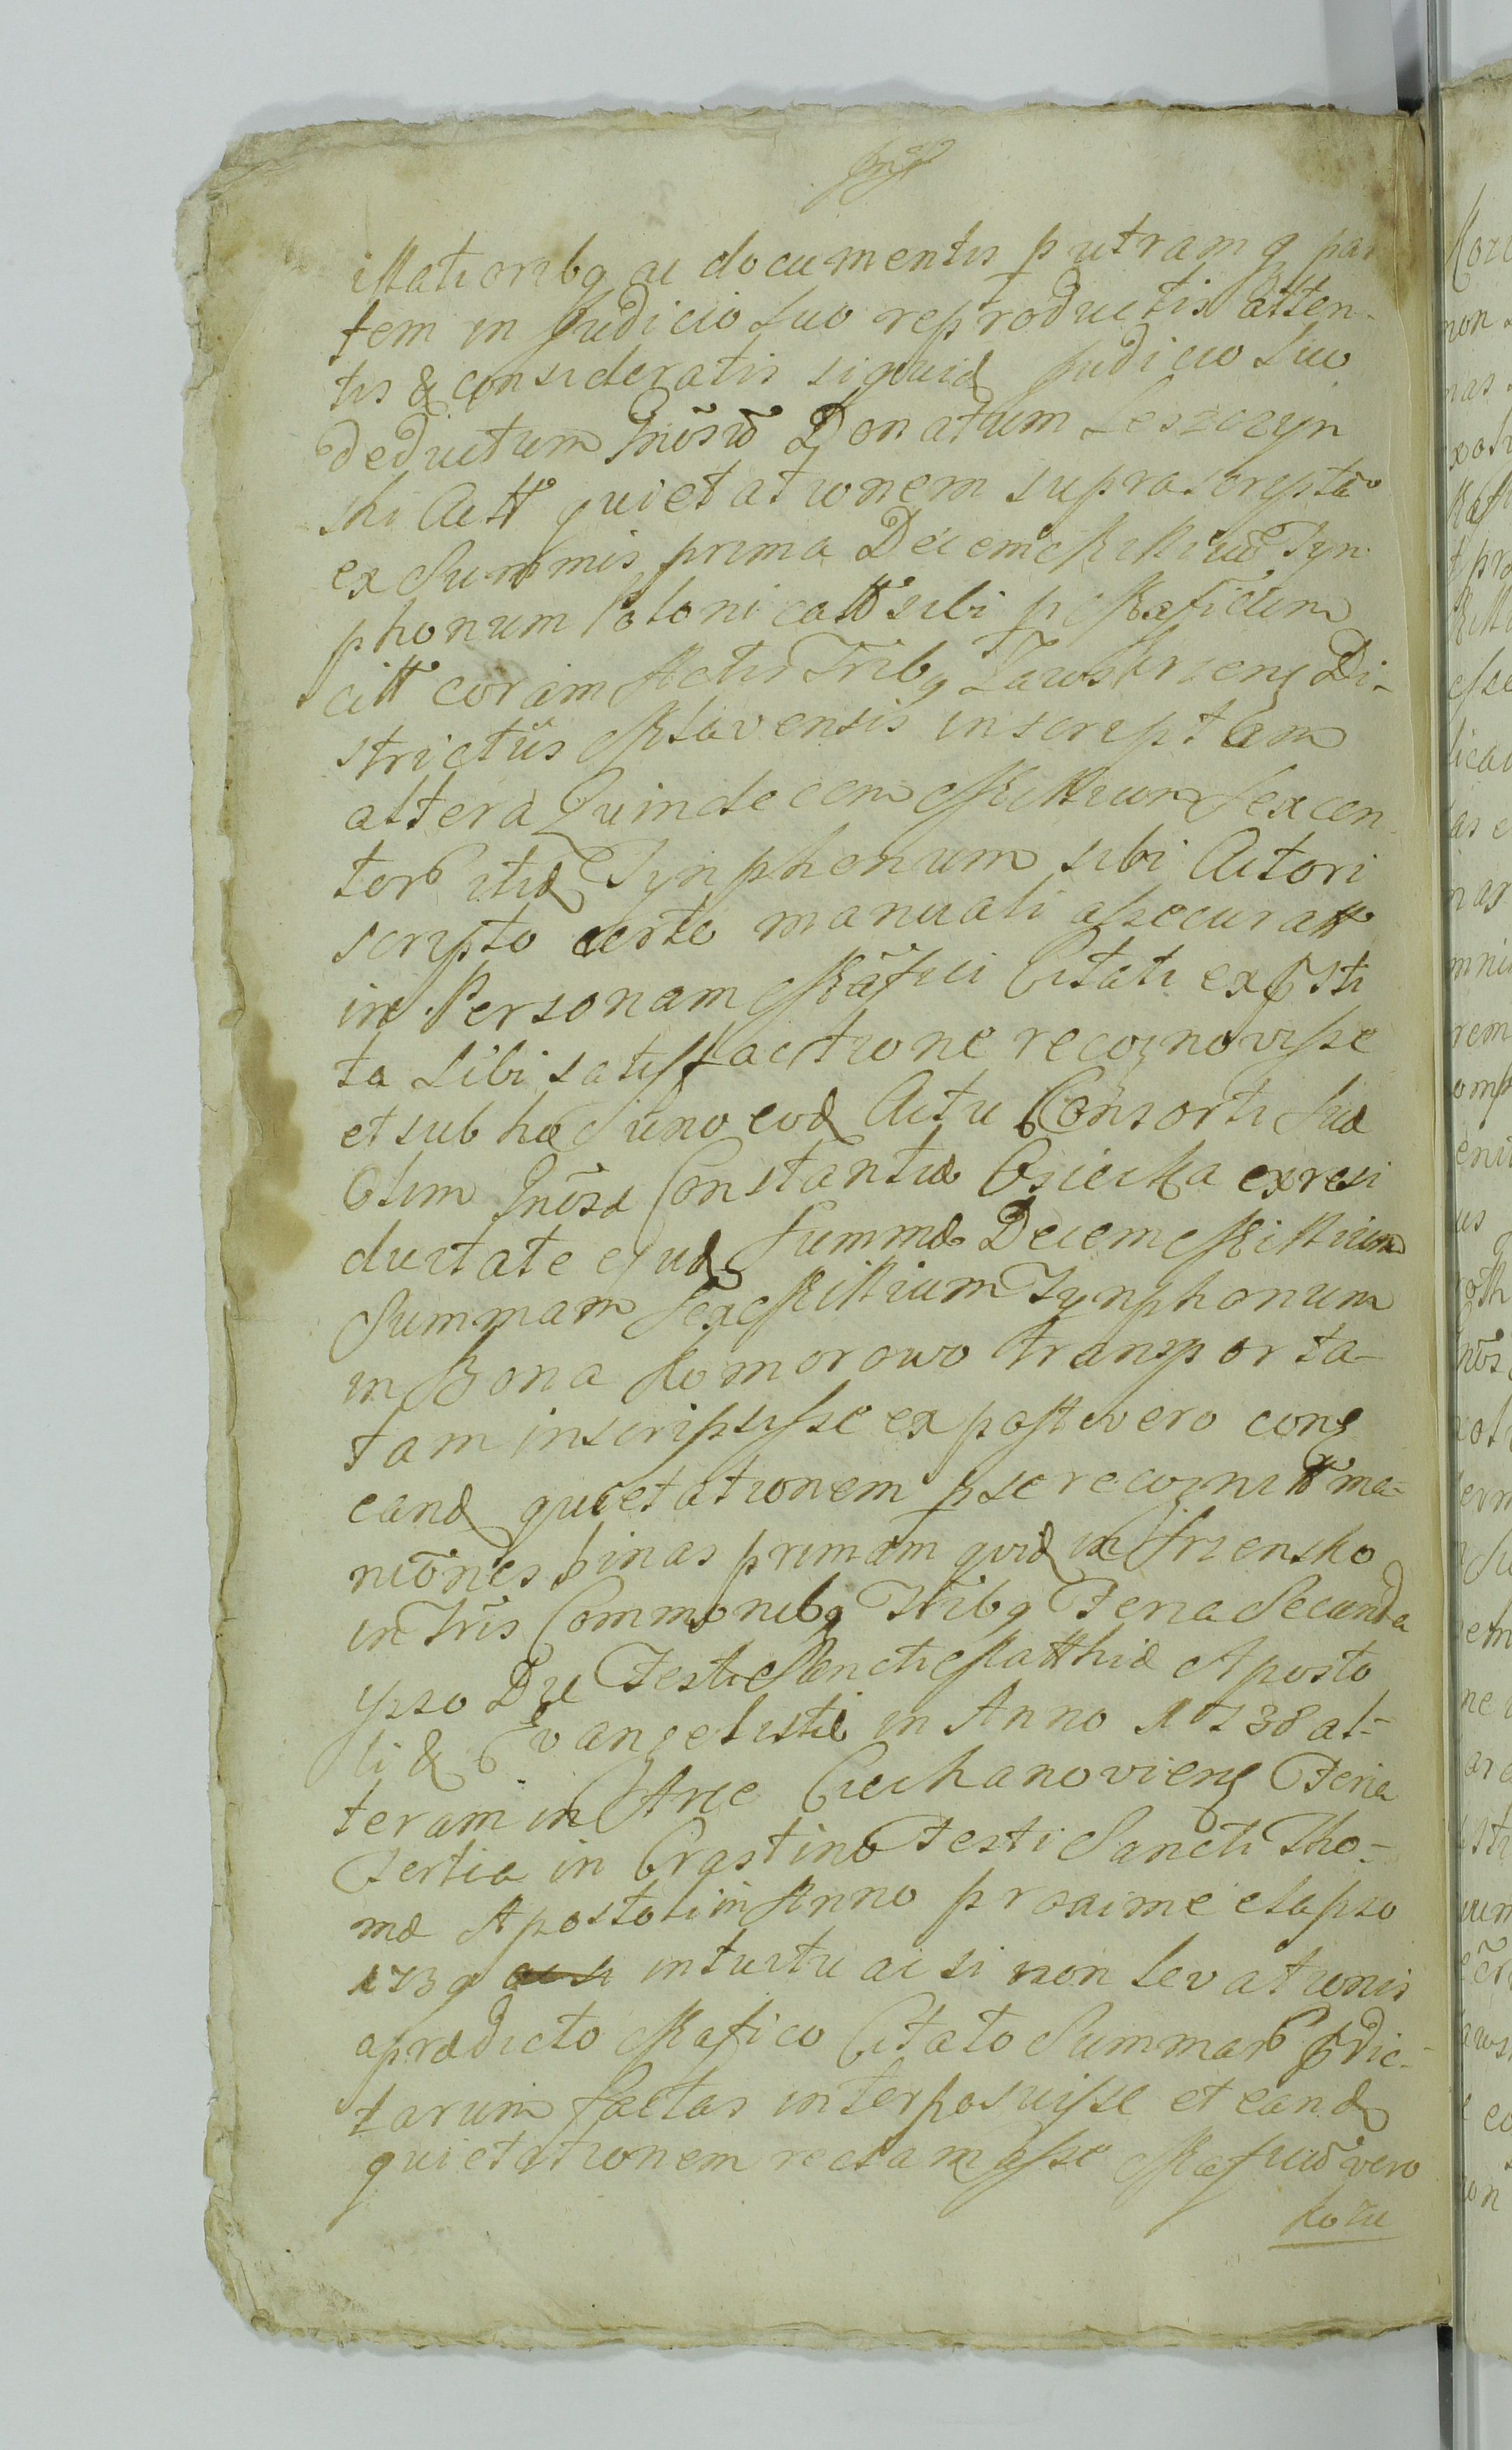 illationibq ac documentis p utramq par
tem in Judicio Suo reproductis atten-
tis & consideratis siquid Judicio Suo
deductum Gnosū Donatum Leszczyn
ski Actt quietationem suprascriptā
ex Summis prima Decem Milliū Tyn
phonum Polonicatt sibi p Mgficum
citt coram Actis Tribq Zawskrzens Di-
strictūs Mlavensis inscriptam
altera Quindecem Millium Sexcen
torū itid Tynphonum sibi Actori
scripto certo manuali assecuratt
in Personam Mgfici Citati ex psti
ta Sibi satisfactione recognovisse
et sub hoc uno eod Actu Consorti Suæ
Olim Gnosæ Constantiæ Osiecka ex resi
duitate ejusd Summæ Decem Millium
Summam Sex Millium Tynphonum
in Bona Komorowo transporta-
tam inscripsisse ex post vero cons
eand quietationem p se recognitt ma-
niōnes binas primam quid in Srzensko
in Tris Commonibq Tribq Feria Secunda
ipso Die Festi Sancti Matthiæ Aposto
li & Evangelistæ in Anno 1738 al-
teram in Arce Ciechanoviens Feria
Tertia in Crastino Festi Sancti Tho-
mæ Apostoli in Anno proxime elapso
1739 intuitu ac si non levationis
a prædicto Mgfico Citato Summarū pdic-
tarum factas interposuisse et eand
quietationem reclamasse Mgficū vero
Kozu